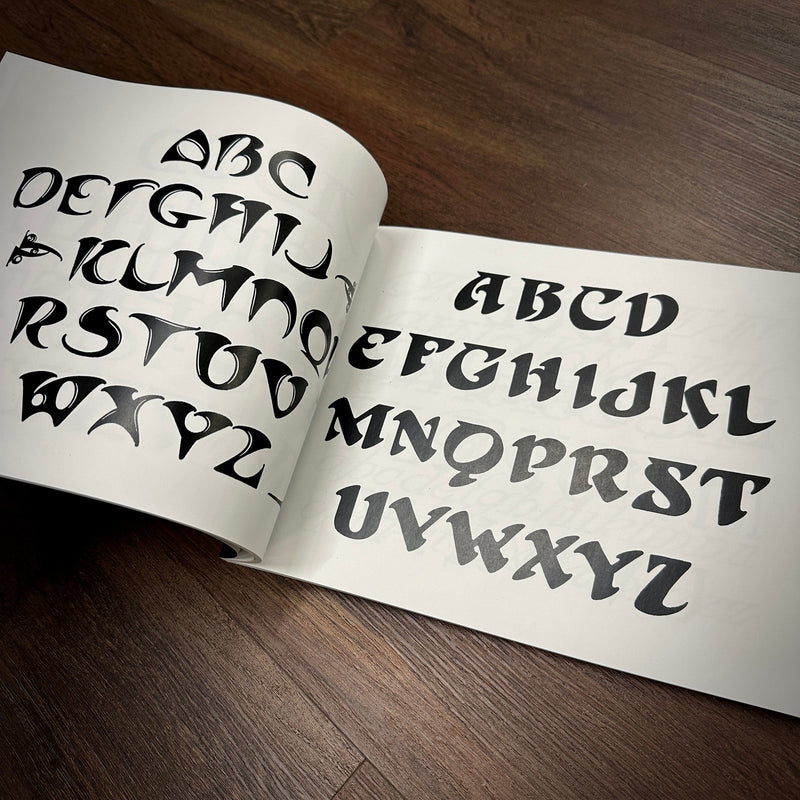 ABC
DEFGHIJ
KLMNQ
RSTUV
WXYZ
ABCD
EFGHIJKL
MNQPRST
UVWXYZ